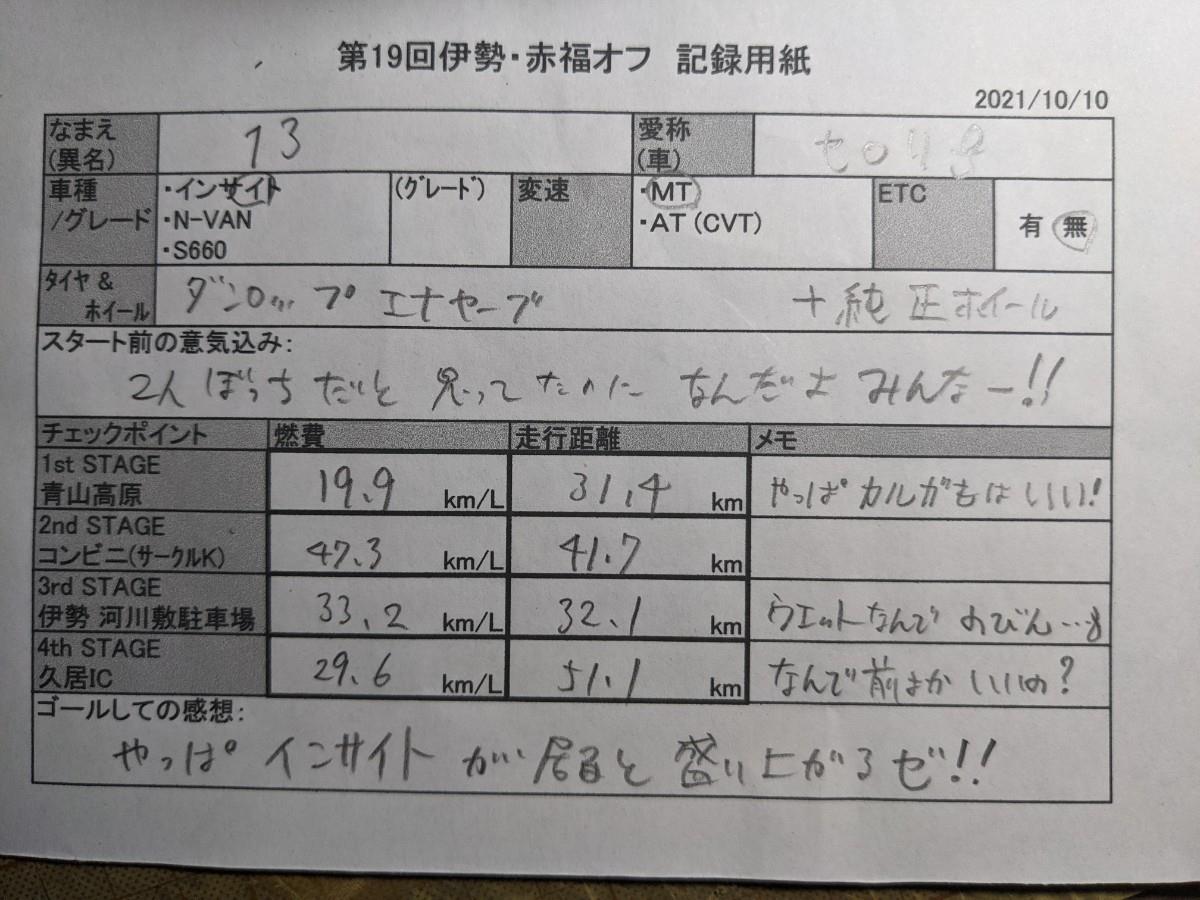 第19回伊勢・赤福オフ 記録用紙
2021/10/10
なまえ(異名) 13 愛称(車) セロリ号
車種/グレード ・インサイト ・N-VAN ・S660 (グレード) 変速 ・MT ・AT (CVT) ETC 有 無
タイヤ & ホイール ダンロップ エナセーブ + 純正ホイール
スタート前の意気込み:
2人ぼっちだと思ってたのに なんだよ みんなー!!
チェックポイント 燃費 走行距離 メモ
1st STAGE 青山高原 19.9 km/L 31.4 km やっぱ カルガモは いい!
2nd STAGE コンビニ(サークルK) 47.3 km/L 41.7 km
3rd STAGE 伊勢 河川敷駐車場 33.2 km/L 32.1 km ウエットなんで のびん…
4th STAGE 久居IC 29.6 km/L 51.1 km なんで前よか いいの?
ゴールしての感想:
やっぱ インサイト が 居ると 盛り上がるゼ!!